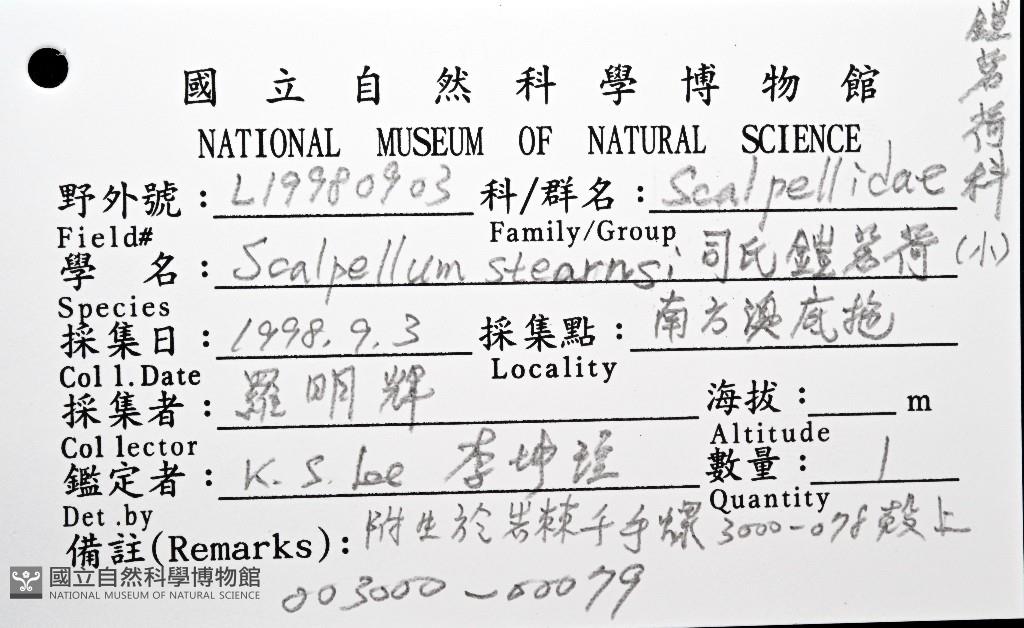 國立自然科學博物館
NATIONAL MUSEUM OF NATURAL SCIENCE
鎧茗荷科(小)
野外號：L19980903 科/群名：Scalpellidae
Field# Family/Group
學名：Scalpellum stearnsi 司氏鎧茗荷
Species
採集日：1998.9.3 採集點：南方澳底拖
Coll.Date Locality
採集者：羅明輝 海拔： m
Collector Altitude
鑑定者：K.S. Lee 李坤瑄 數量：1
Det.by Quantity
備註(Remarks)：附生於岩棘千手螺 3000-078殼上
003000-00079
國立自然科學博物館
NATIONAL MUSEUM OF NATURAL SCIENCE